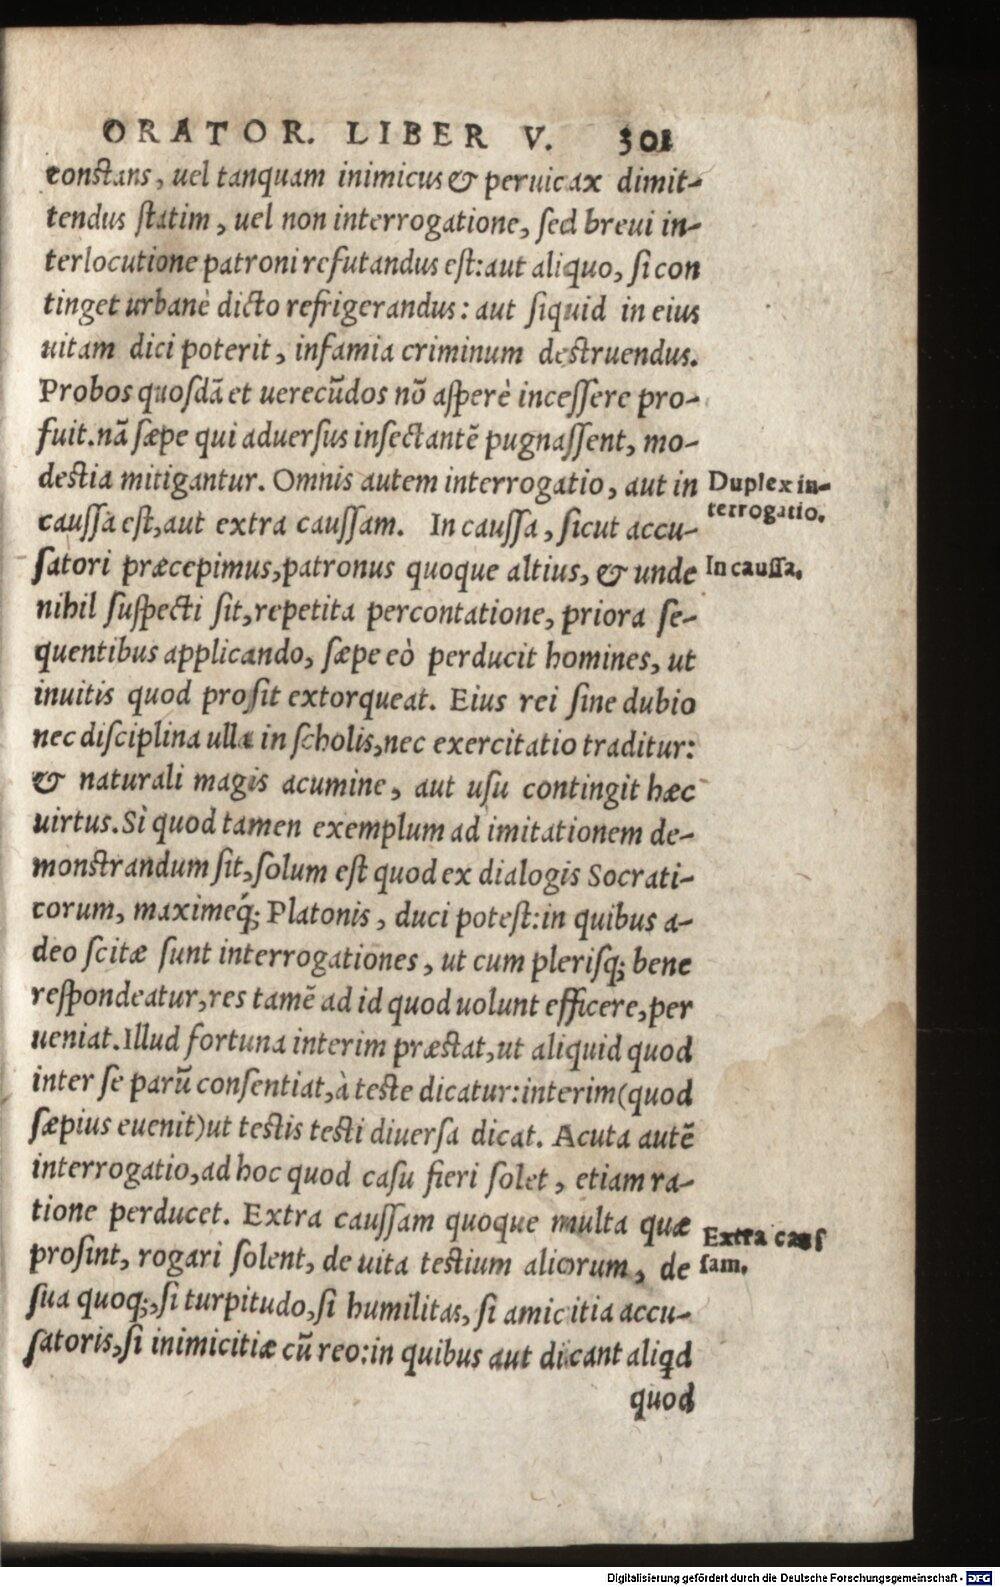 ORATOR. LIBER V. 301
constans, uel tanquam inimicus & peruicax dimit-
tendus ſtatim, uel non interrogatione, ſed breui in-
terlocutione patroni refutandus eſt: aut aliquo, ſi con
tinget urbanè dicto refrigerandus: aut ſiquid in eius
uitam dici poterit, infamia criminum deſtruendus.
Probos quoſdā et uerecūdos nō aſperè inceſſere pro-
fuit. nā ſæpe qui aduerſus inſectantē pugnaſſent, mo-
deſtia mitigantur. Omnis autem interrogatio, aut in
Duplex in-
terrogatio.
cauſſa eſt, aut extra cauſſam. In cauſſa, ſicut accu-
ſatori præcepimus, patronus quoque altius, & unde
In cauſſa.
nihil ſuſpecti ſit, repetita percontatione, priora ſe-
quentibus applicando, ſæpe eò perducit homines, ut
inuitis quod proſit extorqueat. Eius rei ſine dubio
nec diſciplina ulla in ſcholis, nec exercitatio traditur:
& naturali magis acumine, aut uſu contingit hæc
uirtus. Sì quod tamen exemplum ad imitationem de-
monſtrandum ſit, ſolum eſt quod ex dialogis Socrati-
corum, maximeq́; Platonis, duci poteſt: in quibus a-
deo ſcitæ ſunt interrogationes, ut cum pleriſq; bene
reſpondeatur, res tamē ad id quod uolunt efficere, per
ueniat. Illud fortuna interim præſtat, ut aliquid quod
inter ſe parū conſentiat, à teſte dicatur: interim (quod
ſæpius euenit) ut teſtis teſti diuerſa dicat. Acuta autē
interrogatio, ad hoc quod caſu fieri ſolet, etiam ra-
tione perducet. Extra cauſſam quoque multa quæ
Extra cauſ
ſam.
proſint, rogari ſolent, de uita teſtium aliorum, de
ſua quoq;, ſi turpitudo, ſi humilitas, ſi amicitia accu-
ſatoris, ſi inimicitiæ cū reo: in quibus aut dicant aliqd
quod
Digitalisierung gefördert durch die Deutsche Forschungsgemeinschaft - DFG